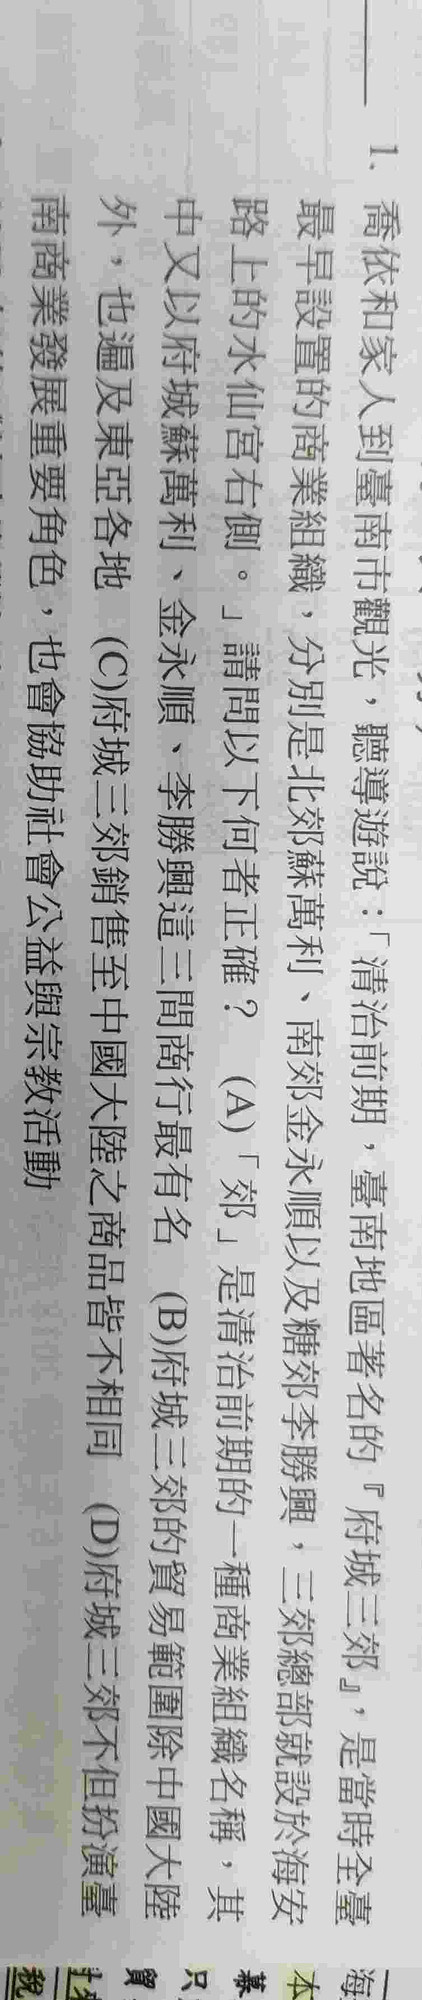 1. 喬依和家人到臺南市觀光，聽導遊說：「清治前期，臺南地區著名的『府城三郊』，是當時全臺
最早設置的商業組織，分別是北郊蘇萬利、南郊金永順以及糖郊李勝興，三郊總部就設於海安
路上的水仙宮右側。」請問以下何者正確？ (A)「郊」是清治前期的一種商業組織名稱，其
中又以府城蘇萬利、金永順、李勝興這三間商行最有名 (B)府城三郊的貿易範圍除中國大陸
外，也遍及東亞各地 (C)府城三郊銷售至中國大陸之商品皆不相同 (D)府城三郊不但扮演臺
南商業發展重要角色，也會協助社會公益與宗教活動
海
本
幕
只
貿
稅